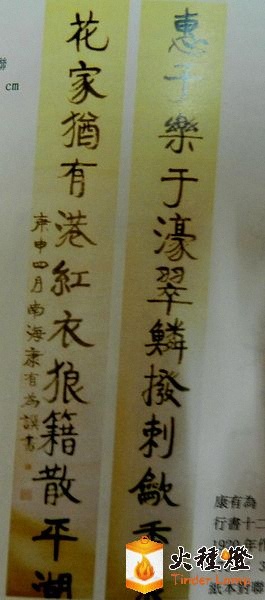 聯
cm
惠子樂于濠翠鱗撥刺歙香
花家猶有港紅衣狼籍散平湖
庚申四月南海康有為譔書
康有為
行書十二
1920 年作
3
紙本對聯
火種燈
Tinder Lamp